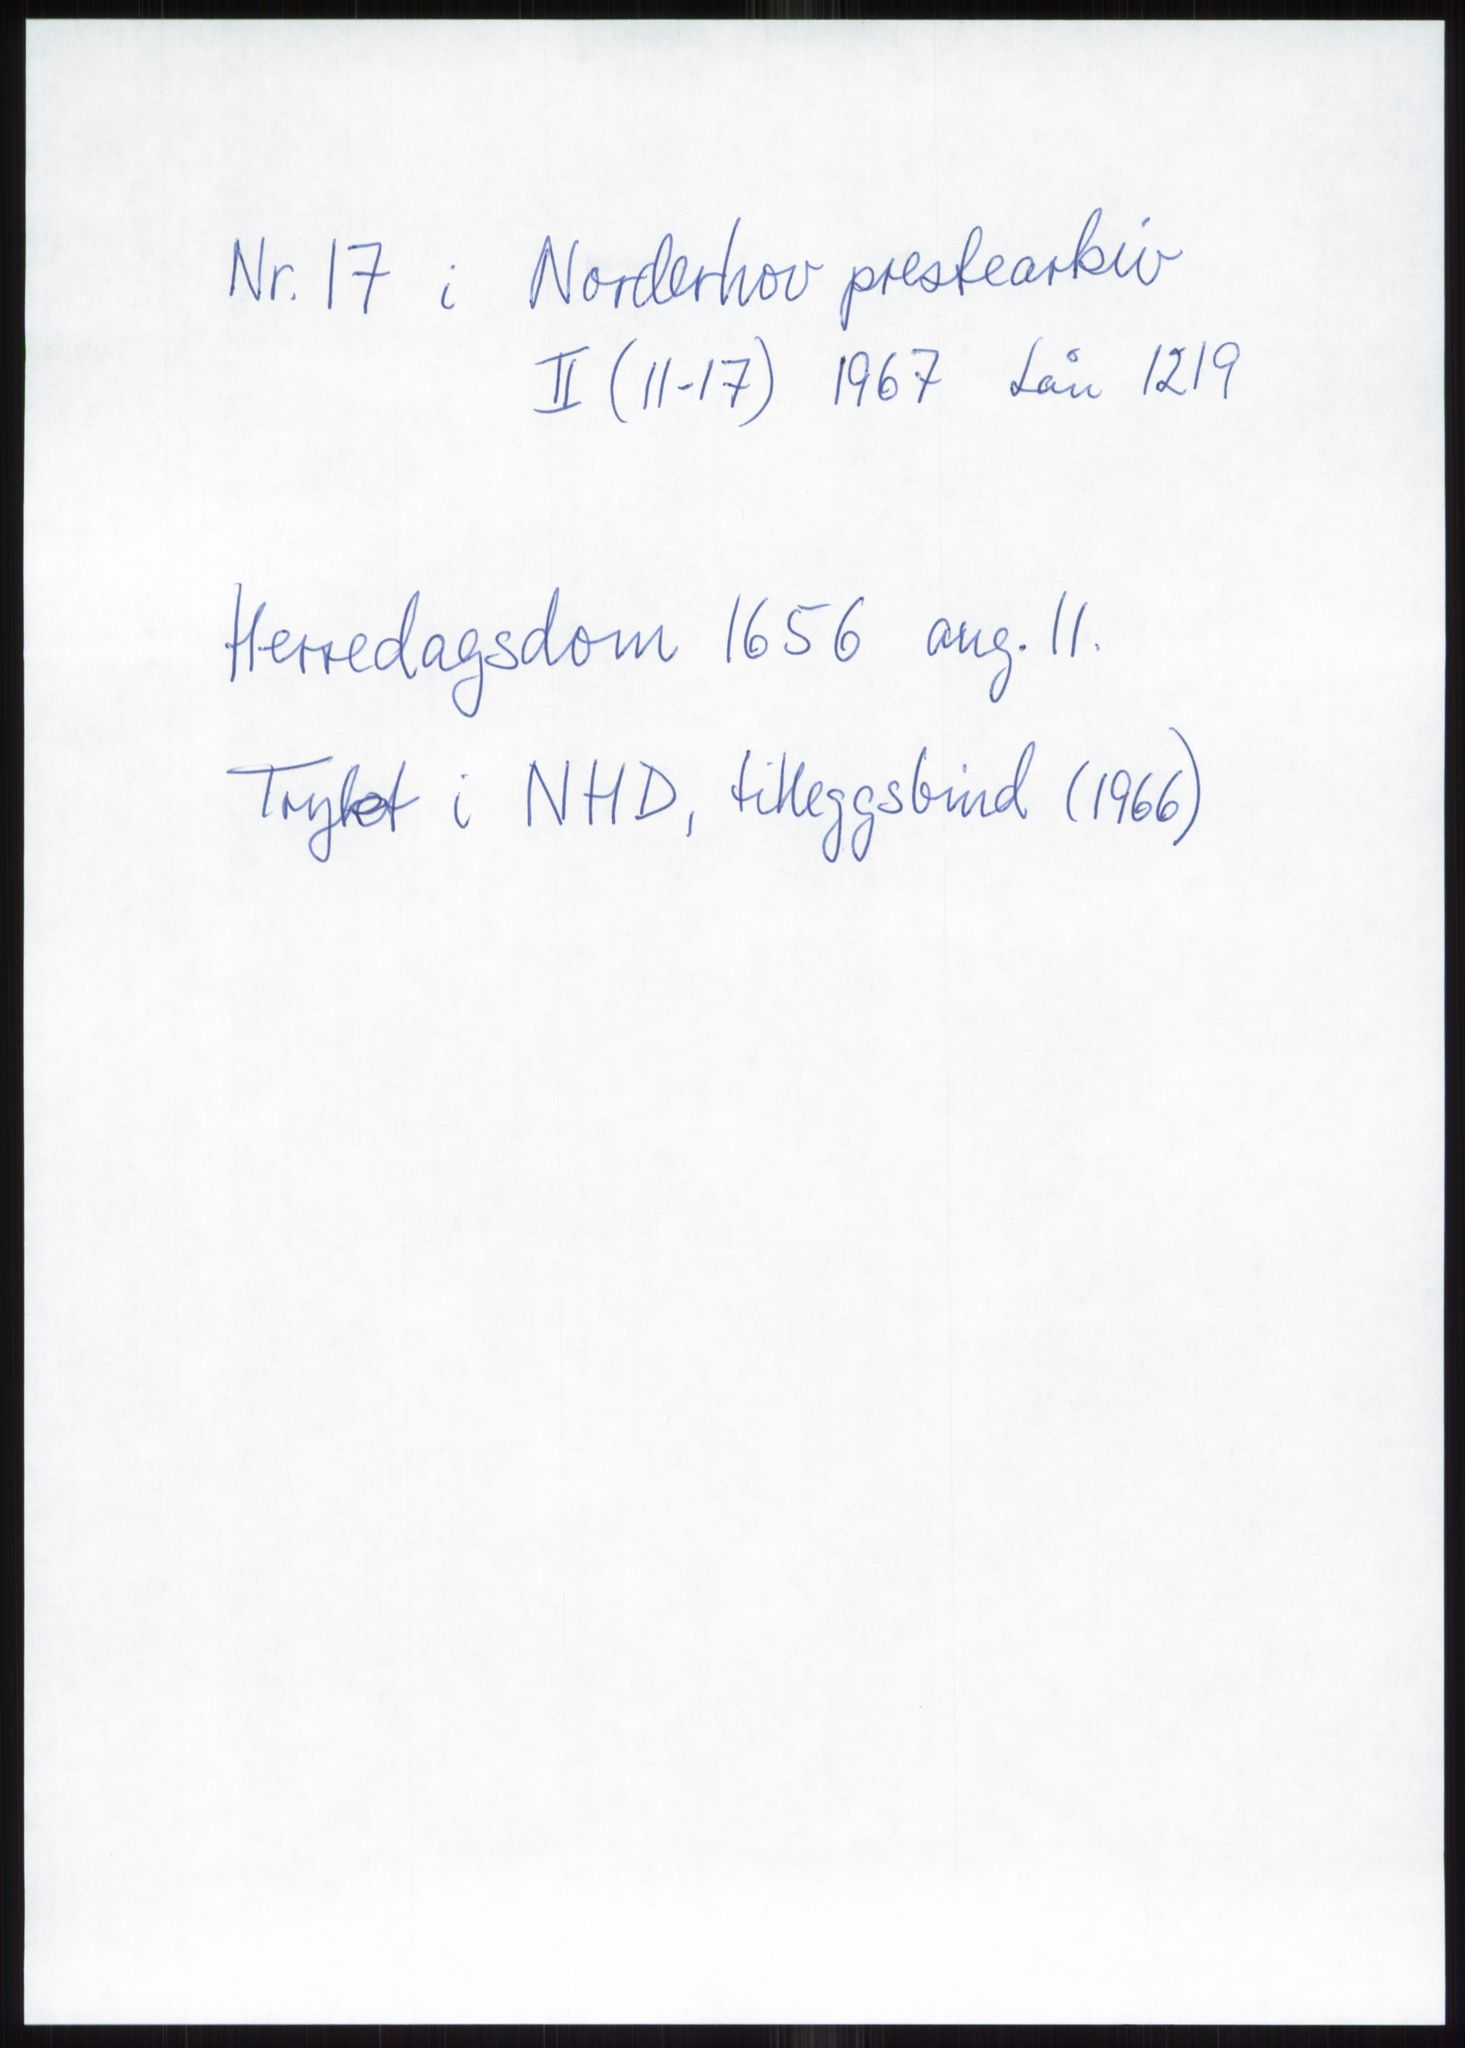 Nr. 17 i Norderhov prestearkiv
II (11-17) 1967 Lån 1219
Herredagsdom 1656 aug. 11.
Trykt i NHD, tilleggsbind (1966)